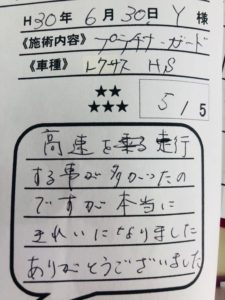 H30年 6月 30日 Y 様
《施術内容》 プラチナ・ガード
《車種》 レクサス HS
★★
★★★
5 / 5
高速を乗る 走行
する事が多かったの
ですが本当に
きれいになりました
ありがとうございました